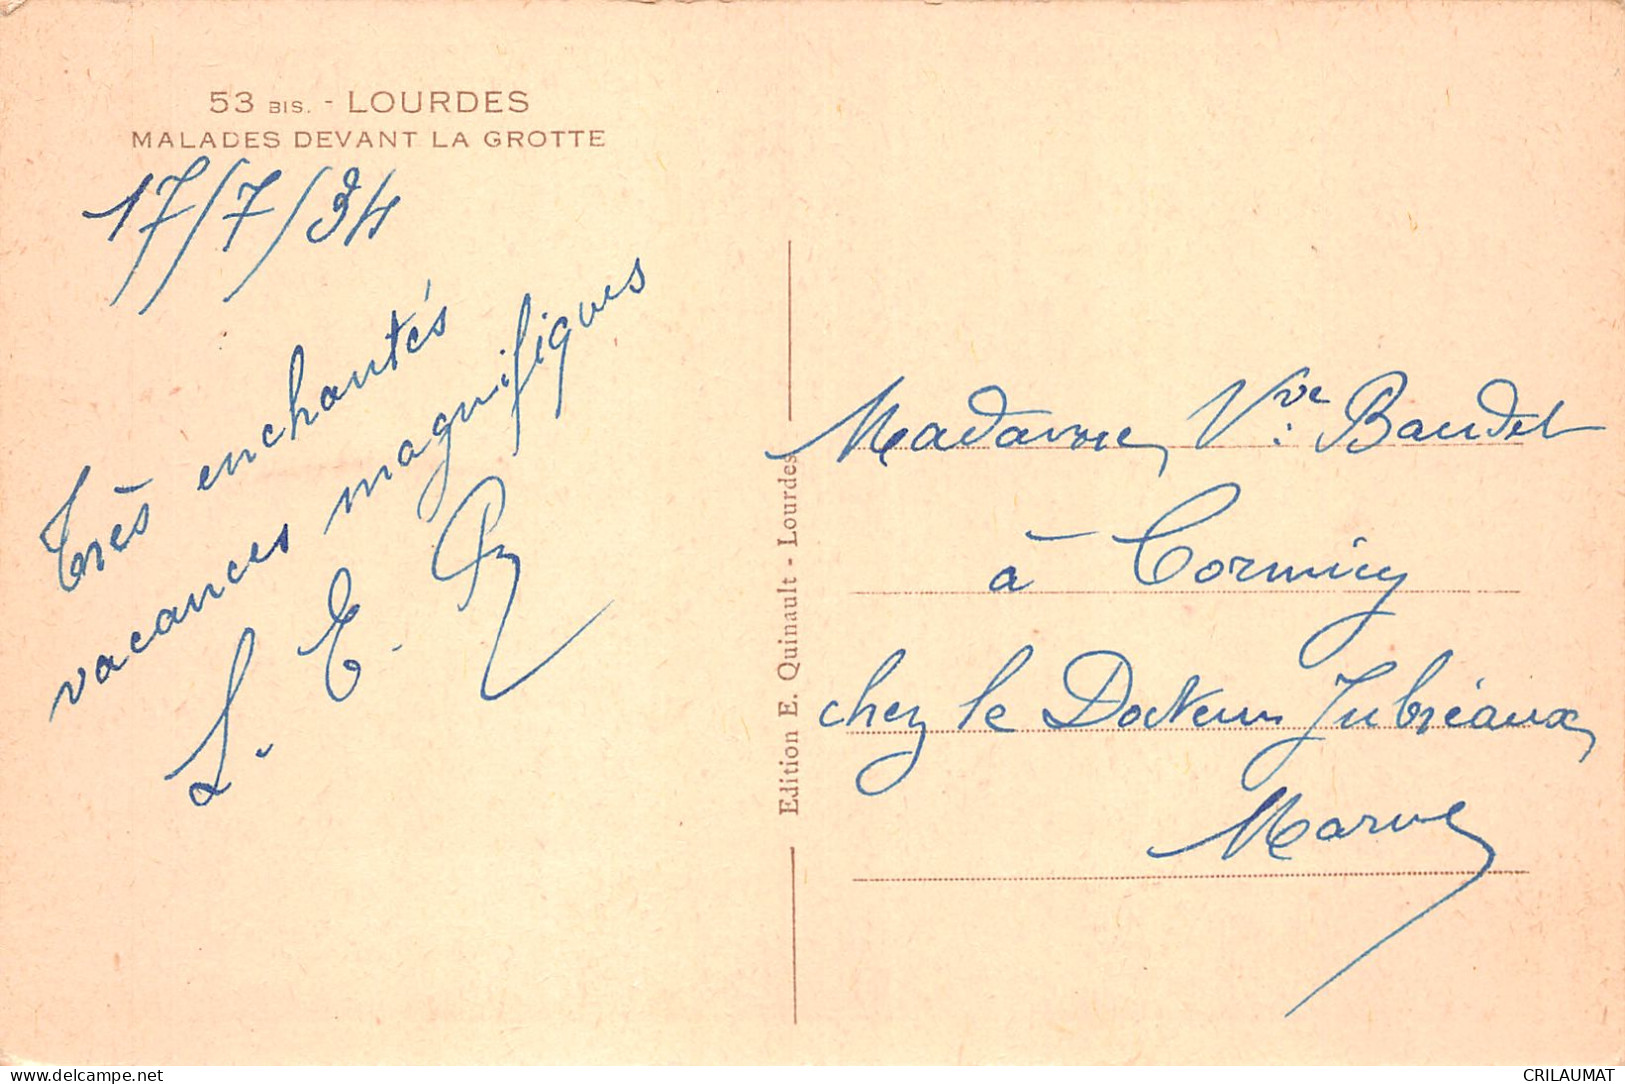 53 BIS. - LOURDES
MALADES DEVANT LA GROTTE
17/7/34
Très enchantés
vacances magnifiques
L. E.
Edition E. Quinault - Lourdes
Madame Vve Baudet
à Cormicy
chez le Docteur Jubréaux
Marne
delcampe.net
CRILAUMAT